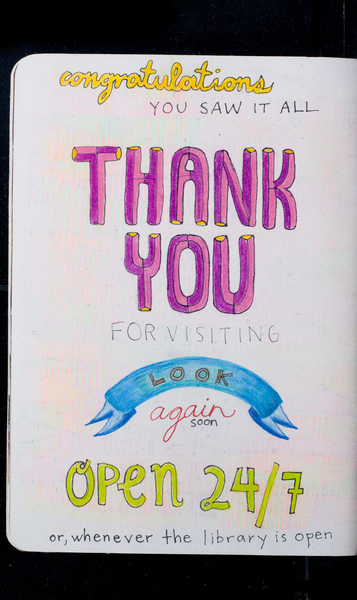 congratulations
YOU SAW IT ALL
THANK
YOU
FOR VISITING
LOOK
again
soon
OPEN 24/7
or, whenever the library is open